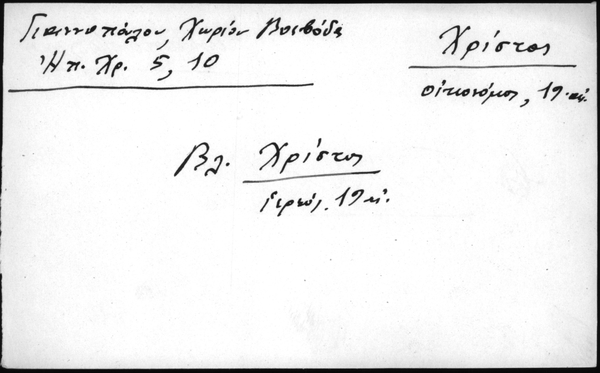 Γιαννοπούλου, Χωρίον Βοεβόδα
Ἠπ. Χρ. 5, 10
Χρίστος
οἰκονόμος, 19. αἰ.
Βλ. Χρίστος
ἱερεύς, 19 αἰ.